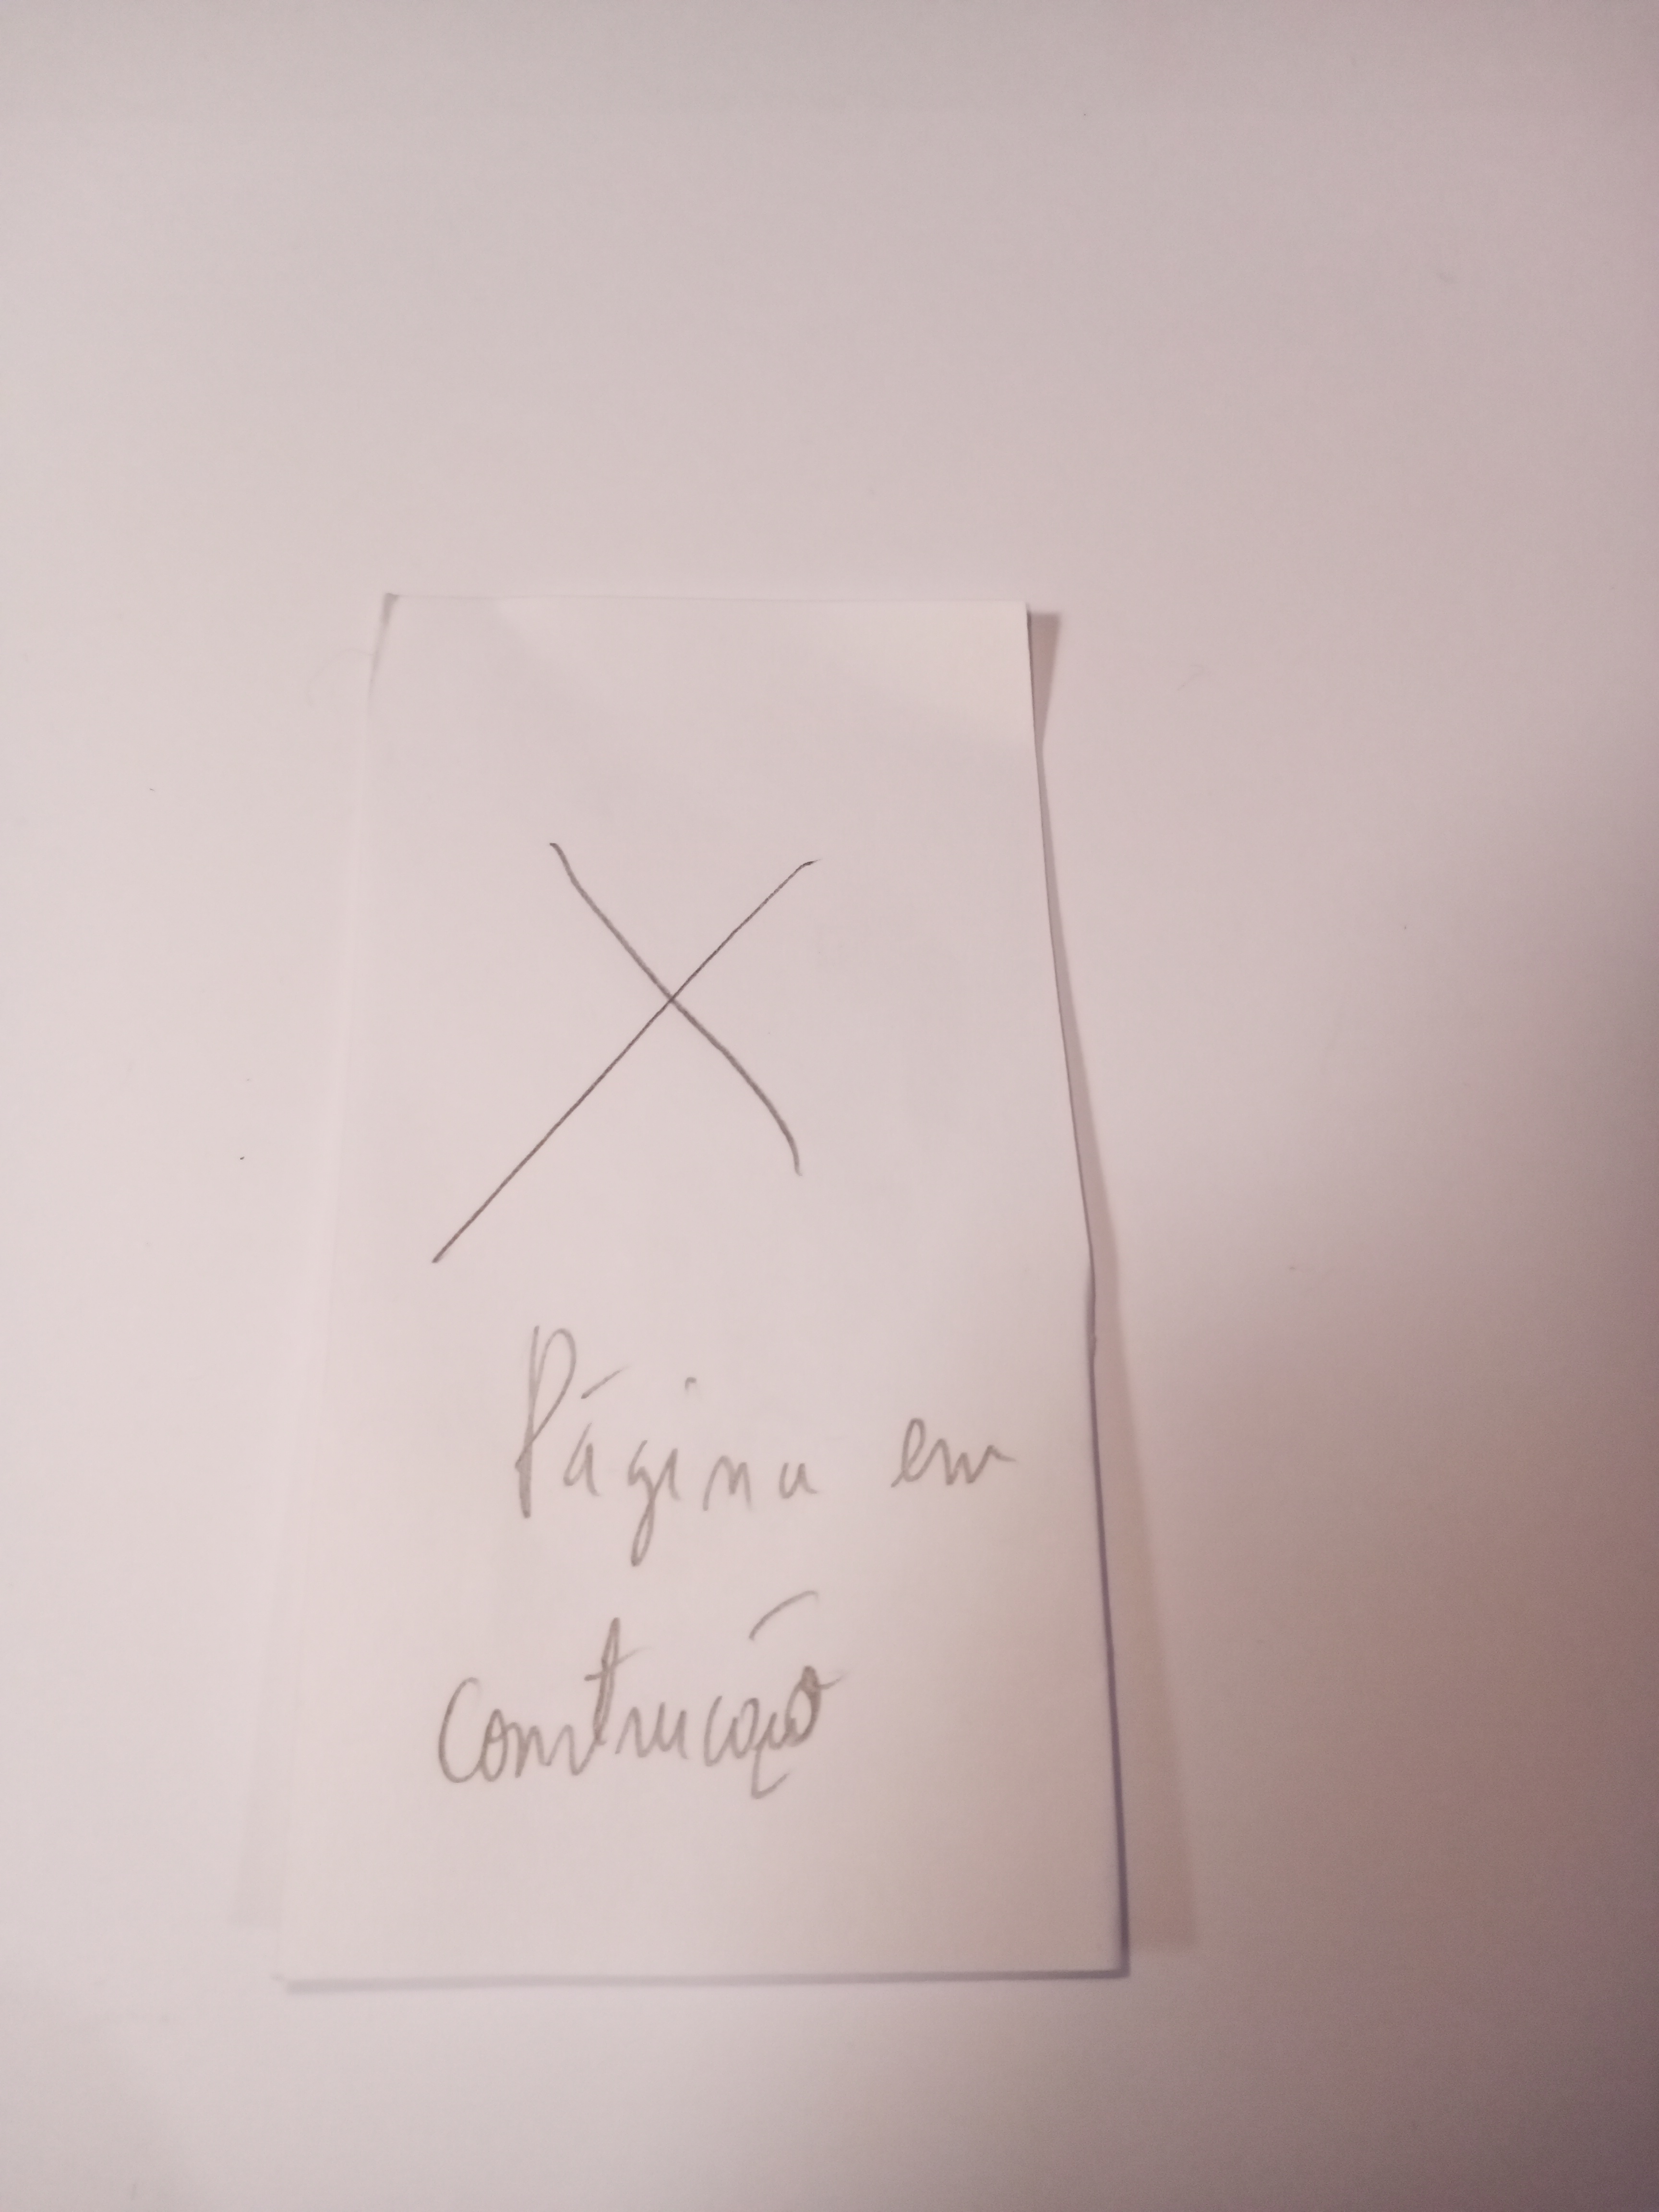 X
Página em
Construção